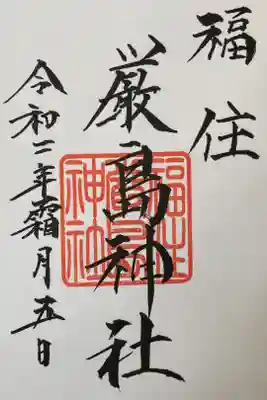 福住
厳島神社
令和二年霜月五日
福住
神社